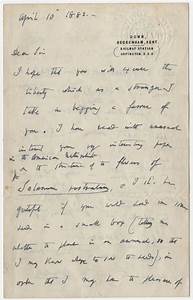 April 10th 1882.
DOWN,
BECKENHAM, KENT.
RAILWAY STATION
ORPINGTON. S.E.R.
Dear Sir
I hope that you will excuse the
liberty which as a stranger I
take in begging a favour of
you. I have read with unusual
interest your very interesting paper
in the American Naturalist
on the structure of the flowers of
Solanum rostratum, & I shd. be
grateful if you would send me some
seed in a small box (telling me
whether the plant is an annual, so that
I may know when to sow the seeds), in
order that I may have the pleasure of